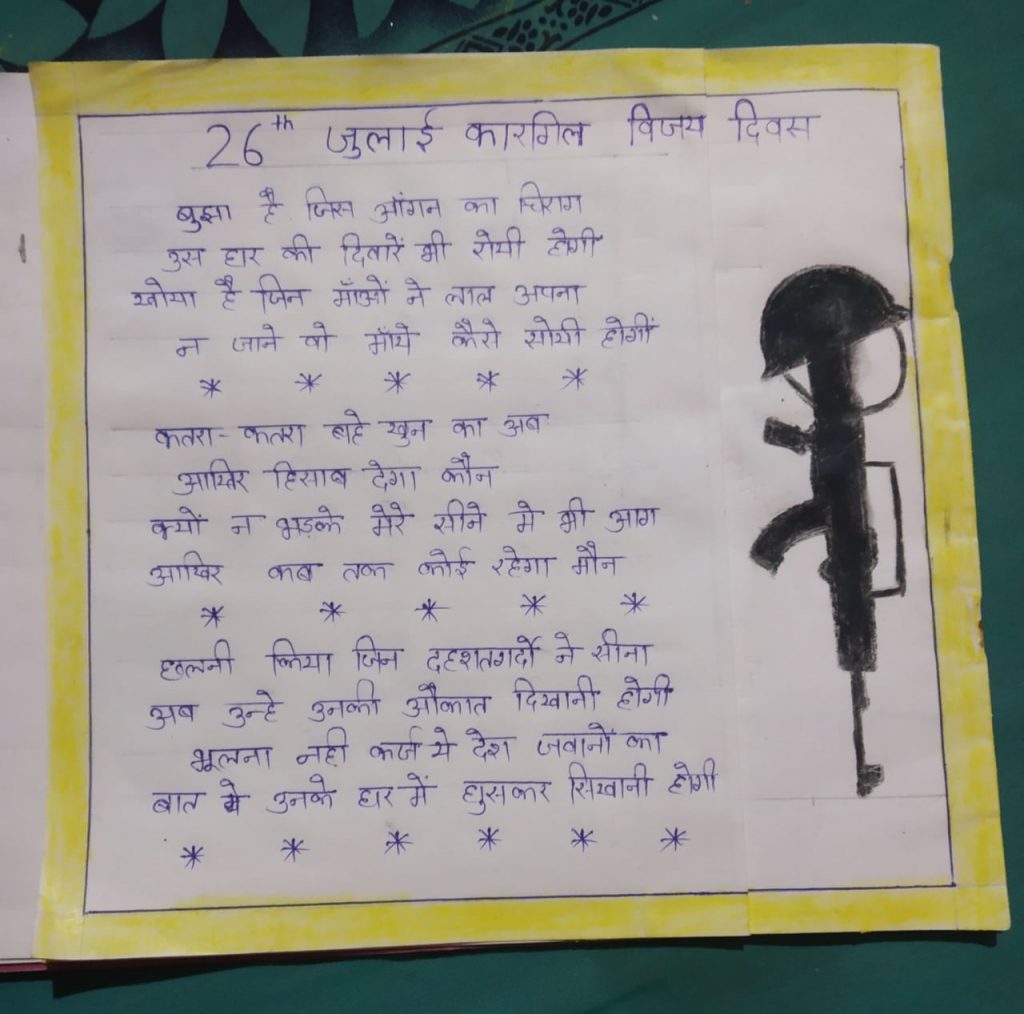 26th जुलाई कारगिल विजय दिवस
बुझा है जिस आंगन का चिराग
उस घर की दिवारें भी रोयी होगी
खोया है जिन माँओं ने लाल अपना
न जाने वो माँये कैसे सोयी होगीं
* * * * *
कतरा-कतरा बाहे खुन का अब
आखिर हिसाब देगा कौन
क्यों न भड़के मेरे सीने मे भी आग
आखिर कब तक कोई रहेगा मौन
* * * * *
छलनी किया जिन दहशतगर्दो ने सीना
अब उन्हे उनकी औकात दिखानी होगी
भूलना नही कर्ज ये देश जवानों का
बात ये उनके घर में घुसकर सिखानी होगी
* * * * * *